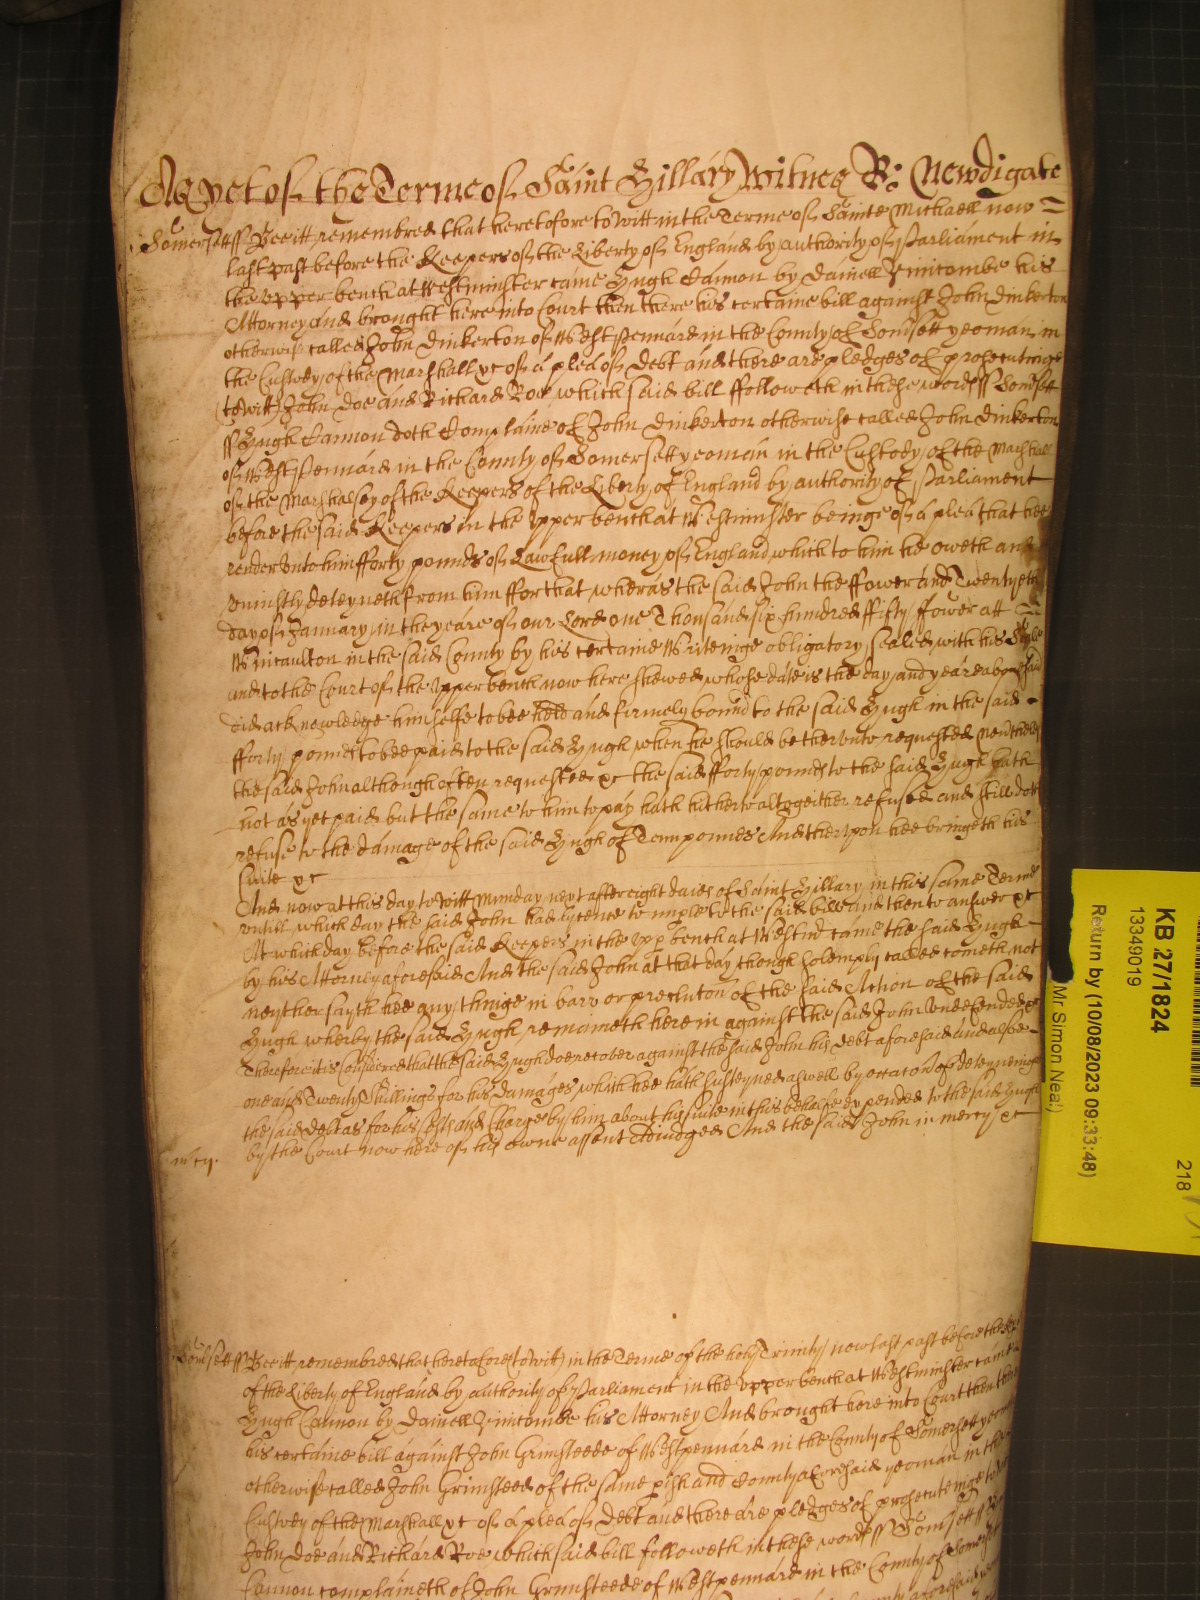 As yet of the Terme of Saint Hillary Witnes R: Newdigate
Somersett ss Beeitt remembred that heretofore to Witt in the Terme of Sainte Michaell now
last past before the Keepers of the Liberty of England by authority of Parliament in
the upper bench at Westminster came Hugh Cannon by Daniell his
Attorney and brought here into Court then there his certaine bill against John Dinkerton
otherwise called John Dinkerton of West Pennard in the County of Somsett yeoman in
the Custody of the Marshall &c of a plea of Debt and there are pledges of prosecutinge
(to Witt) John Doe and Richard Roe which said bill ffolloweth in these words ss Somsett
ss Hugh Cannon doth Complaine of John Dinkerton otherwise called John Dinkerton
of West Pennard in the County of Somersett yeoman in the Custody of the Marshall
of the Marshalsey of the Keepers of the Liberty of England by authority of Parliament
before the said Keepers in the Upper bench at Westminster beinge of a plea that hee
render unto him fforty pounds of Lawfull money of England which to him he oweth and
uniustly deteyneth from him ffor that wheras the said John the ffower and Twentyeth
day of January in the yeare of our Lord one Thousand six hundred ffifty ffower att
Wincaulton in the said County by his certaine Writeinge obligatory sealed with his Seale
and to the Court of the Upper bench now here shewed whose date is the day and yeare abovesaid
did acknowledge himselfe to bee held and firmely bound to the said Hugh in the said
fforty pounds to bee paid to the said Hugh when he should be therunto requested Neverthelesse
the said John although often requested &c the said fforty pounds to the said Hugh hath
not as yet paid but the same to him to pay hath hitherto altogeither refused and still doth
refuse to the damage of the said Hugh of Tenn pounds And therupon hee bringeth his
suite &c
And now at this day to Witt Munday next after eight daies of Saint Hillary in this same Terme
untill which day the said John had lycence to imple to the said bill and then to answer &c
At which day before the said Keepers in the upp bench at Westmr came the said Hugh
by his Attorney aforesaid And the said John at that day though solemply called cometh not
neyther sayth hee any thinge in barr or preclution of the said Action of the said
Hugh wherby the said Hugh remaineth herein against the said John undefended &c
Therefore it is Considered that the said Hugh doe recover against the said John his debt aforesaid and alsoe
one and Twenty Shillings for his damages which hee hath susteyned aswell by occacon of deteyninge
the said debt as for his costs and Charge by him about his suite in this behalfe expended to the said Hugh
by the Court now here of his owne assent Adiudged And the said John in mercy &c
mercy.
Somsett ss Beeitt remembred that heretofore (to Witt) in the Terme of the holy Trinity now last past before the
of the Liberty of England by authority of Parliament in the Upper bench at Westminster came
Hugh Cannon by Daniell his Attorney And brought here into Court then there
his certaine bill against John Grimsteede of Westpennard in the County of Somersett yeoman
otherwise called John Grimsteed of the same pish and County aforesaid yeoman in the
Custody of the Marshall &c of a plea of Debt and there are pledges of prosecuteinge to Witt
John Doe and Richard Roe which said bill followeth in these words ss Somsett ss
Cannon complaineth of John Grimsteede of Westpennard in the County of Somersett
County aforesaid
KB 27/1824
13349019
Return by (10/08/2023 09:33:48)
Mr Simon Neal)
218